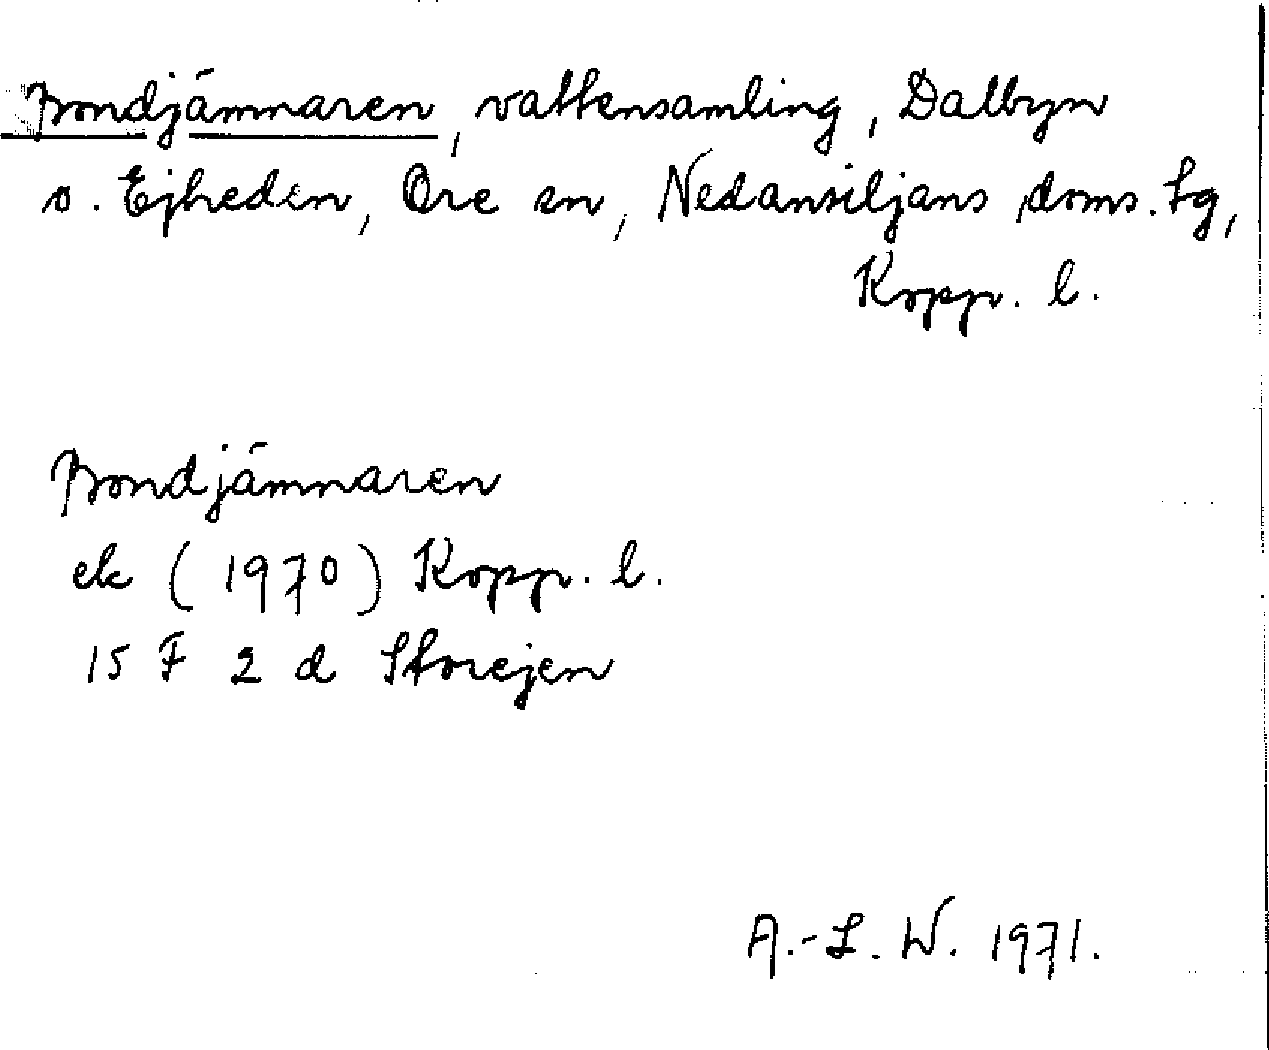 Bondjämnaren, vattensamling, Dalbyn
o. Ejheden, Ore sn, Nedansiljans doms.tg,
Kopp. l.
Bondjämnaren
ek (1970) Kopp. l.
15 F 2 d Storejen
A.-L. W. 1971.